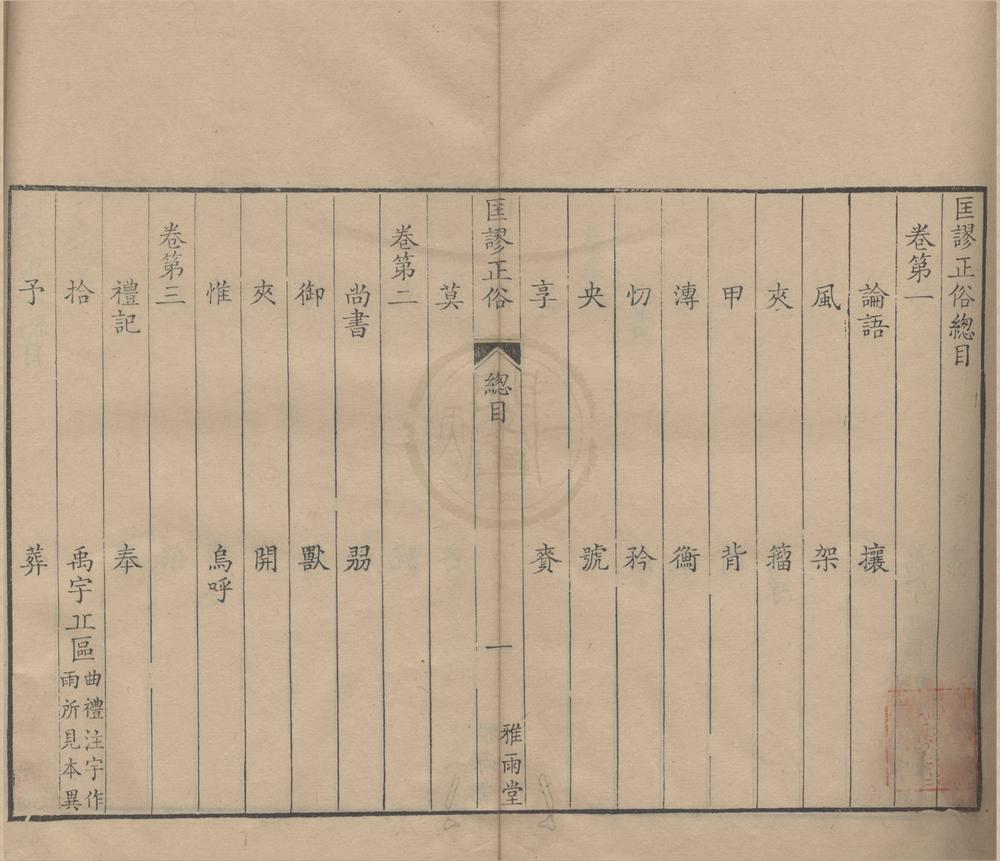 匡謬正俗總目
卷第一
論語 攘
風 架
夾 籀
甲 背
漙 衡
忉 矜
央 號
享 賚
匡謬正俗 總目 一 雅雨堂
莫
卷第二
尚書 𢎺
御 獸
夾 開
惟 烏呼
卷第三
禮記 奉
拾 禹宇㐀區 曲禮注宇作
雨所見本異
予 葬